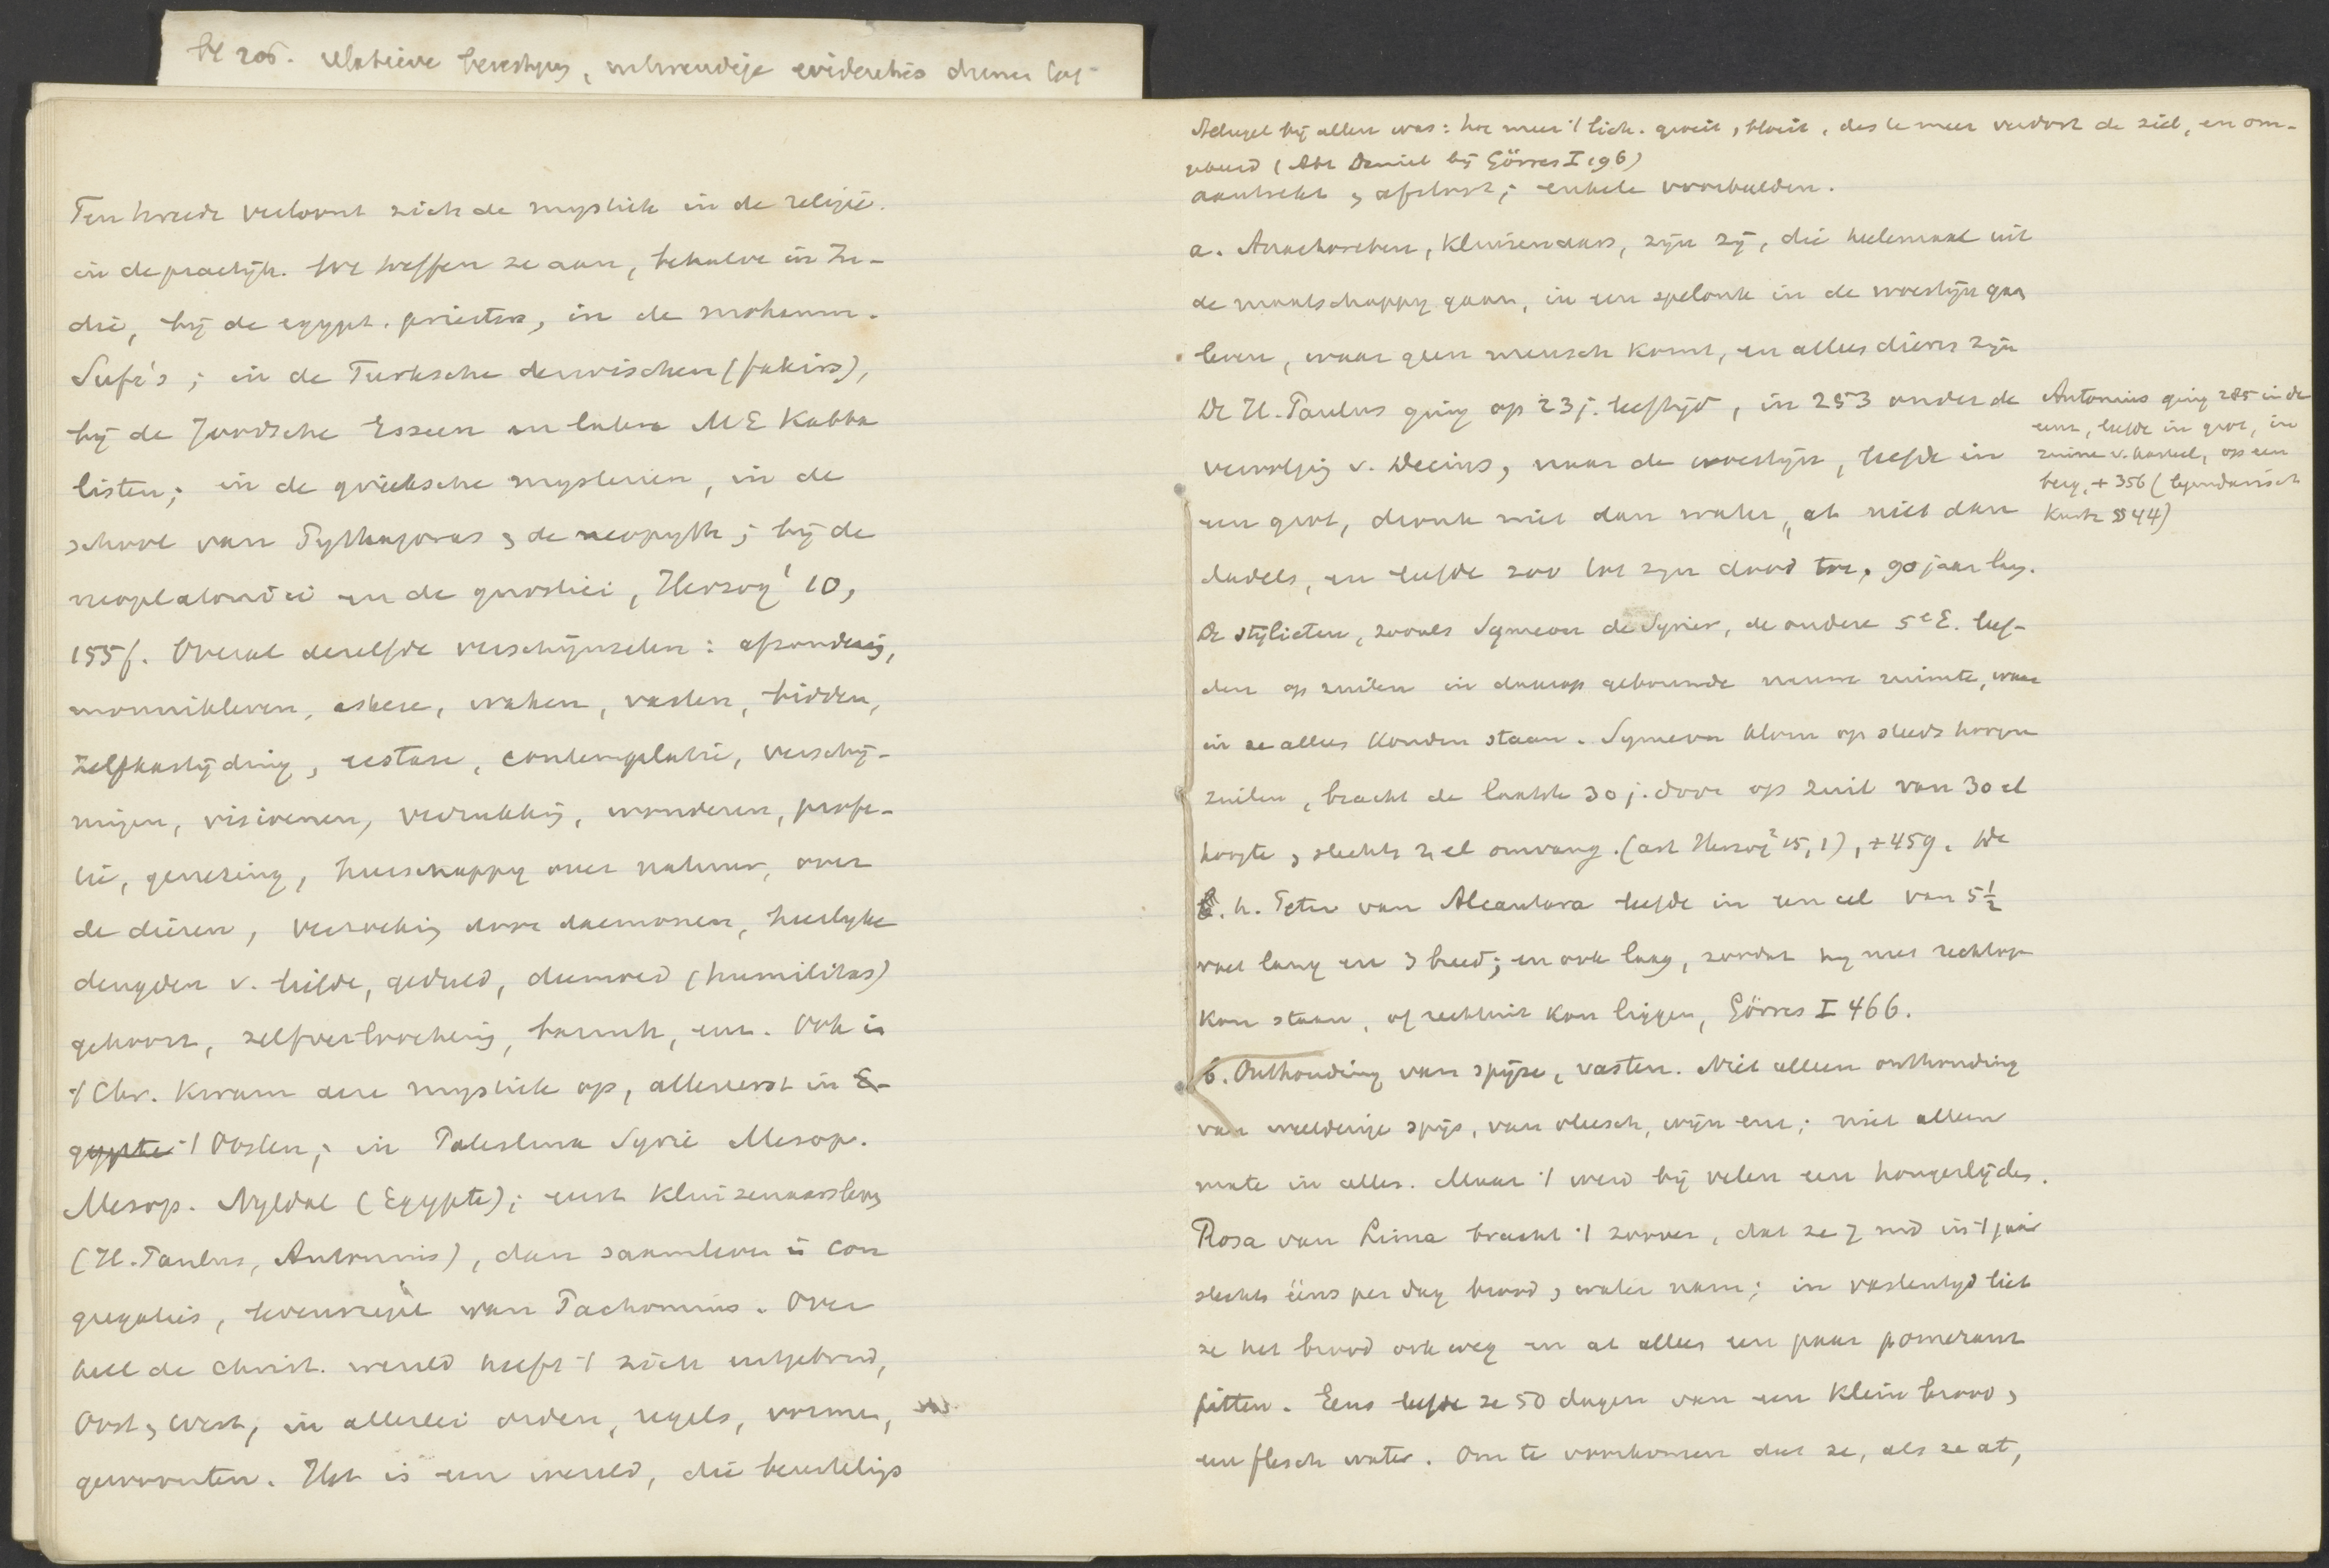 bl 205. relatieve
Ten tweede vertoont zich de mystiek in de religie.
in de practijk. We treffen ze aan, behalve in In-
dië, bij de egypt. priesters, in de mohamm.
Sufi's; in de Turksche derwischen (fakirs),
bij de Joodsche Esseen en latere ME Kabba
listen; in de grieksche mysterien, in de
school van Pythagoras & de neopyth; bij de
neoplatonici en de gnostici, Herzog¹ 10,
155f. Overal dezelfde verschijnselen: afzondering,
monnikleven, askese, waken, vasten, bidden,
zelfkastijding, ecstase, contemplatie, verschij-
ningen, visioenen, verrukking, wonderen, profe-
tie, genezing, heerschappy over natuur, over
de dieren, verzoeking door daemonen, heerlyke
deugden v. liefde, geduld, deemoed (humilitas)
gehoorz, zelfverloochening, armoe, enz. Ook in
't Chr. kwam deze mystiek op, allereerst in E-
gypte 't Oosten; in Palestina Syrië Mesop.
Mesop. Nyldal (Egypte); eerst kluizenaarsleven
(H. Paulus, Antonius), dan saamleven in con
gregaties, levensregel van Pachomius. Over
heel de Christ. wereld heeft 't zich uitgebreid,
Oost & West, in allerlei orden, regels, vormen,
gewoonten. Het is een wereld, die beurtelings
Stelregel bij allen was: hoe meer 't lich. groeit, bloeit, des te meer verdort de ziel, en om-
gekeerd (Abt Daniel bij Görres I 196)
aantrekt & afstoot; enkele voorbeelden.
a. Anachoreten, kluizenaars, zijn zij, die heelemaal uit
de maatschappy gaan, in een spelonk in de woestijn gaan
leven, waar geen mensch komt, en alleen dieren zijn
De H. Paulus ging op 23 j. leeftijd, in 253 onder de
vervolging v. Decius, naar de woestijn, leefde in
een grot, dronk niet dan water, at niet dan
dadels, en leefde zoo tot zijn dood toe, 90 jaar lang.
Antonius ging 285 in de
eenz, leefde in grot, in
ruine v. kasteel, op een
berg, + 356 (legendarisch
Kurtz § 44)
De stylieten, zooals Symeon de Syrier, de oudere 5e E. leef-
den op zuilen in daarop gebouwde nauwe ruimte, waar
in ze alleen konden staan. Symeon klom op steeds hooger
zuilen, bracht de laatste 30 j. door op zuil van 30 el
hoogte & slechts 2 el omvang. (art Herzog² 15,1), +459. De
h. Peter van Alcantara leefde in een cel van 5½
voet lang en 3 breed; en ook laag, zoodat hy niet rechtop
kon staan, of rechtuit kon liggen, Görres I 466.
b. Onthouding van spijze, vasten. Niet alleen onthouding
van weelderige spijs, van vleesch, wijn enz; niet alleen
mate in alles. Maar 't werd bij velen een hongerlijden.
Rosa van Lima bracht 't zoover, dat ze in 't jaar
slechts ééns per dag brood & water nam; in vastentyd liet
ze het brood ook weg en at alleen een paar pomerans
pitten. Eens leefde ze 50 dagen van een klein brood &
een flesch water. Om te voorkomen dat ze, als ze at,